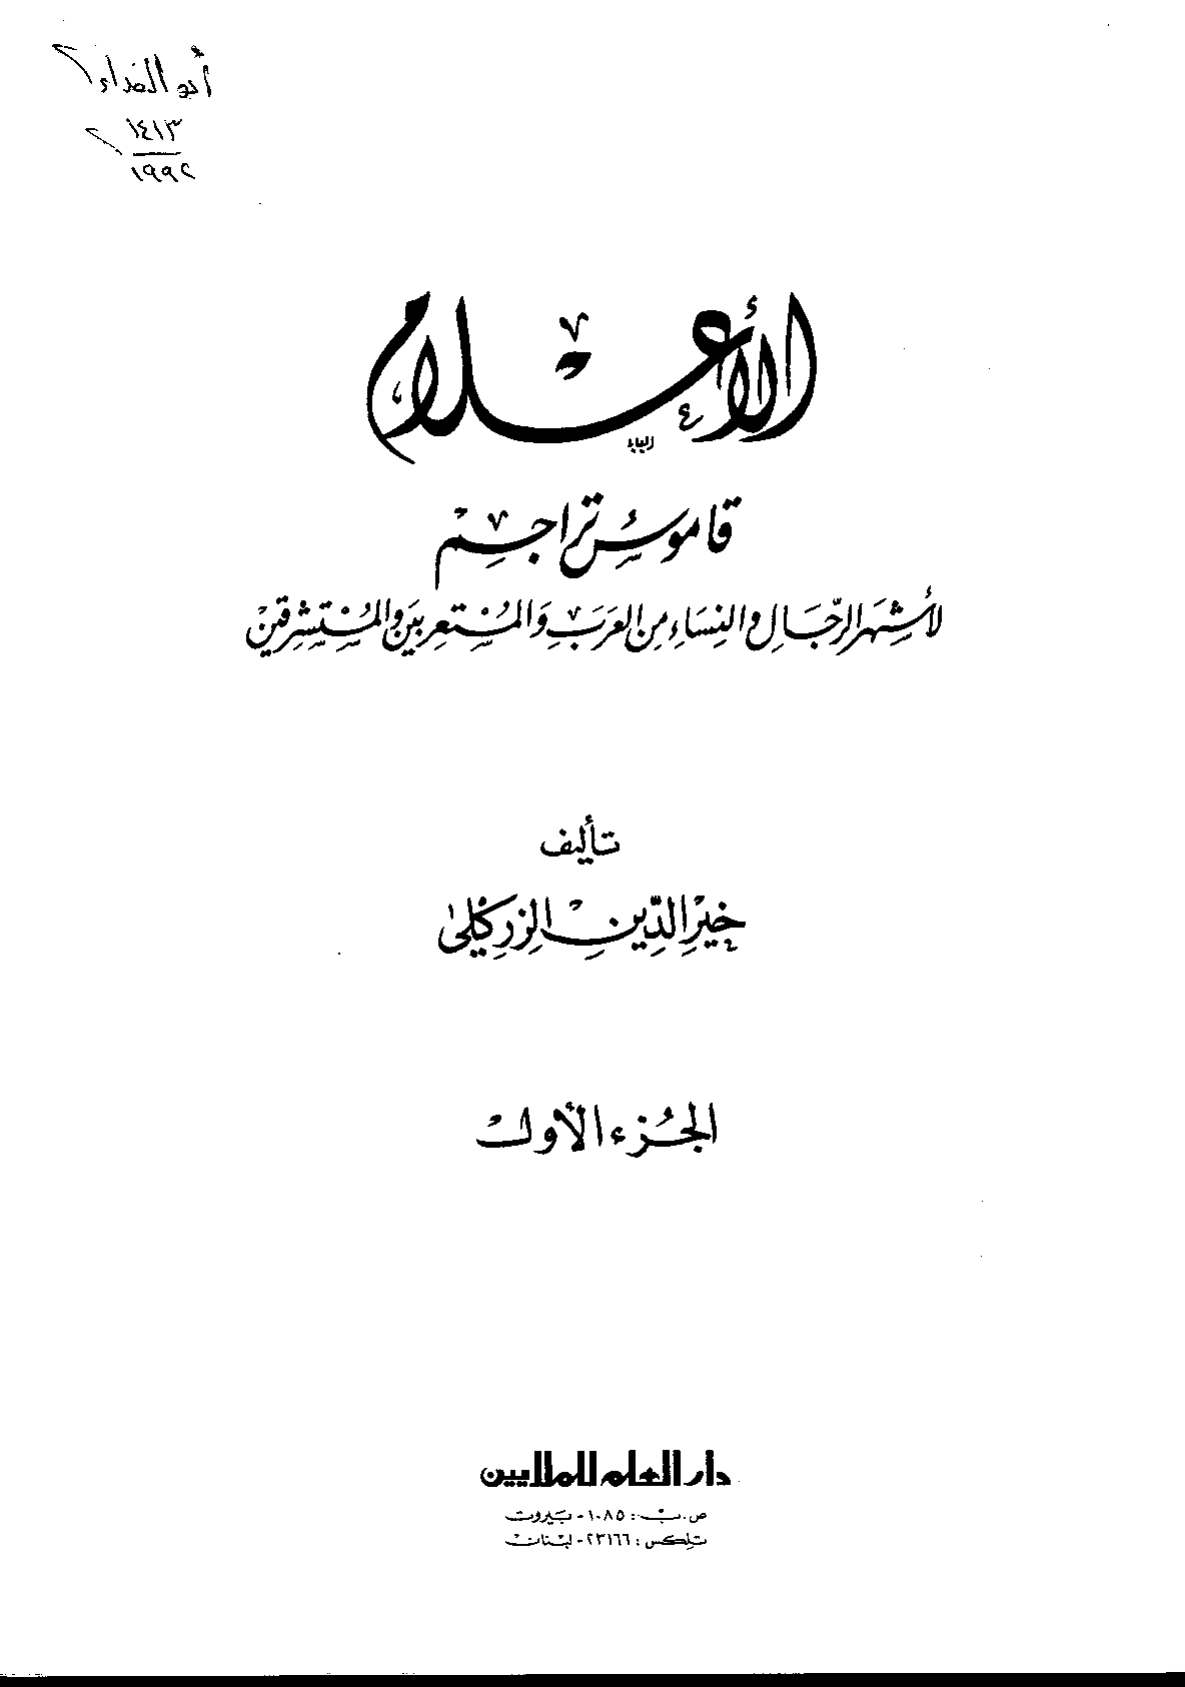 أبو الفداء
١٤١٣
١٩٩٢
الأعلام
قاموس تراجم
لأشهر الرّجال والنِسَاء من العَرَب وَالمُسْتعربين وَالمُسْتشرقينْ
تأليف
خير الدّين الزركلي
الجُزء الأول
دار العلم للملايين
ص.ب: ١٠٨٥ - بَيروت
تلكس: ٢٣١٦٦ - لبْنان